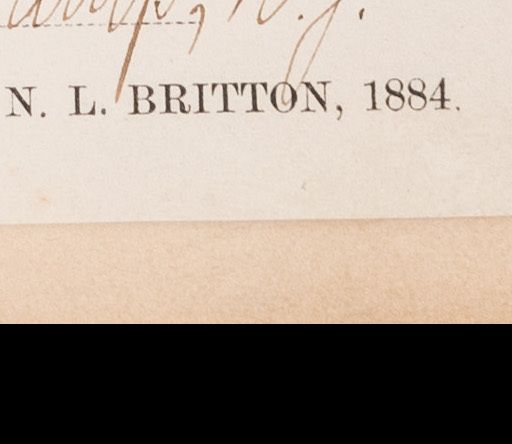 N. J.
N. L. BRITTON, 1884.